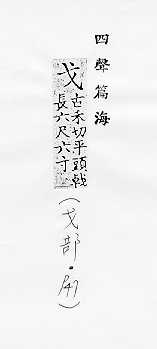 四聲篇海
戈
古禾切平頭戟
長六尺六寸
(戈部·141)